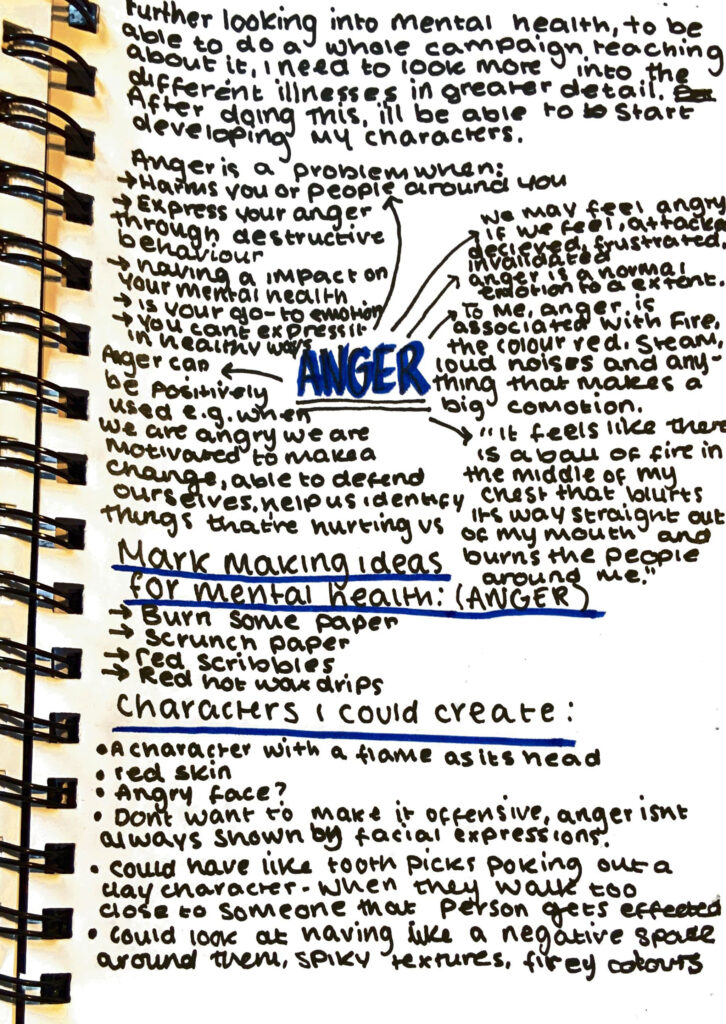 Further looking into mental health, to be
able to do a whole campaign teaching
about it, I need to look more into the
different illnesses in greater detail.
After doing this, ill be able to start
developing my characters.
Anger is a problem when:
→ Harms you or people around you
→ Express your anger
through destructive
behaviour
→ having a impact on
your mental health
→ is your go-to emotion
→ you cant express it
in healthy ways
We may feel angry
if we feel, attacked
decieved, frustrated,
invalidated
anger is a normal
emotion to a extent.
To me, anger, is
associated with fire,
the colour red, steam,
loud noises and any-
thing that makes a
big comotion.
ANGER
Anger can
be positively
used e.g. when
we are angry we are
motivated to make a
change, able to defend
ourselves, help us identify
things that're hurting us
"It feels like there
is a ball of fire in
the middle of my
chest that blurts
its way straight out
of my mouth and
burns the people
around me."
Mark making ideas
for mental health: (ANGER)
→ Burn some paper
→ Scrunch paper
→ red scribbles
→ Red hot wax drips
Characters I could create:
• A character with a flame as its head
• red skin
• Angry face?
• Dont want to make it offensive, anger isnt
always shown by facial expressions.
• could have like tooth picks poking out a
clay character - when they walk too
close to someone that person gets effected
• could look at having like a negative space
around them, spiky textures, firey colours